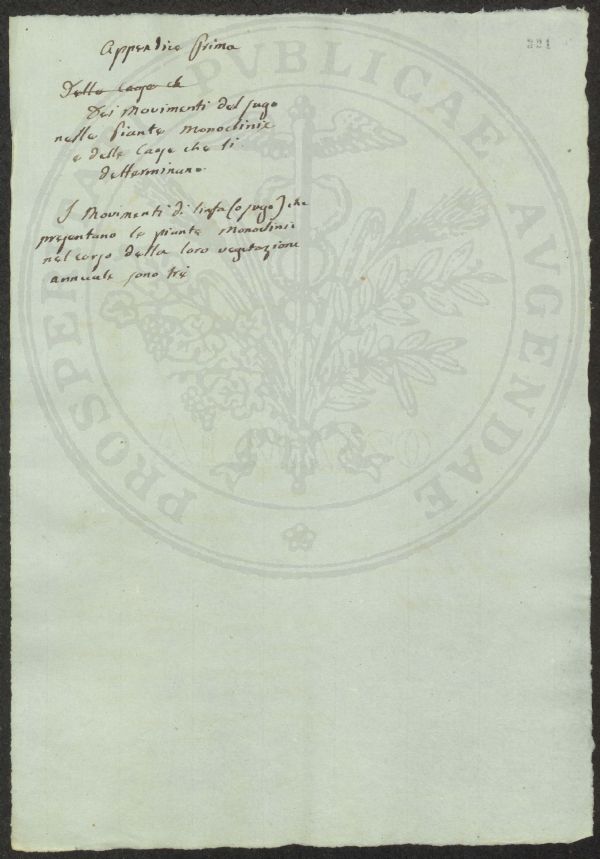 221
Appendice Prima
Delle cause ch
Dei Movimenti del sugo
nelle Piante Monoclinie
e delle Cause che li
detterminano.
I Movimenti di linfa (o sugo) che
presentano le piante Monoclinie
nel corso della loro vegetazione
annuale sono tre
PROSPERITATI PVBLICAE AVGENDAE